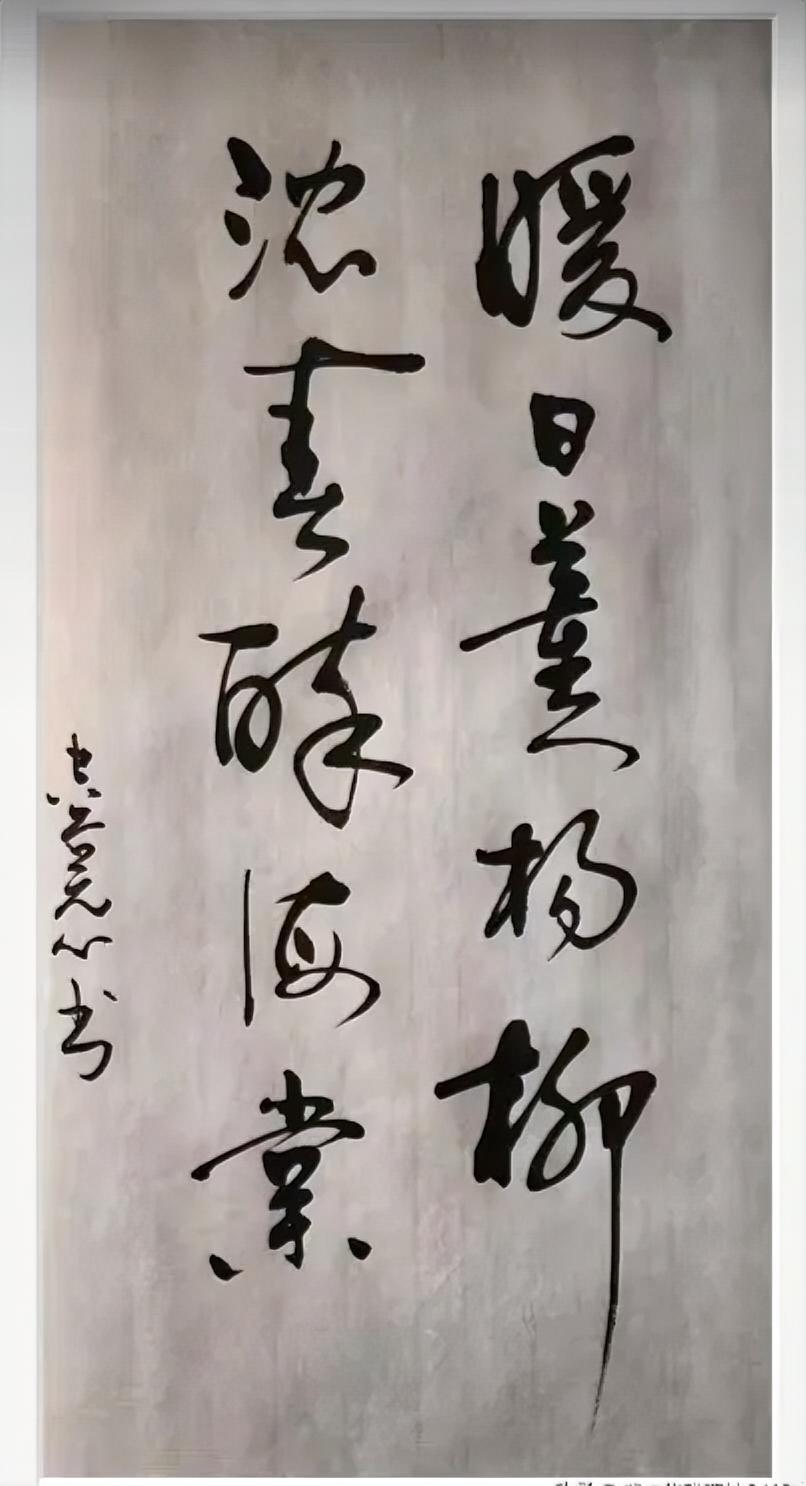 暖日薰杨柳
浓春醉海棠